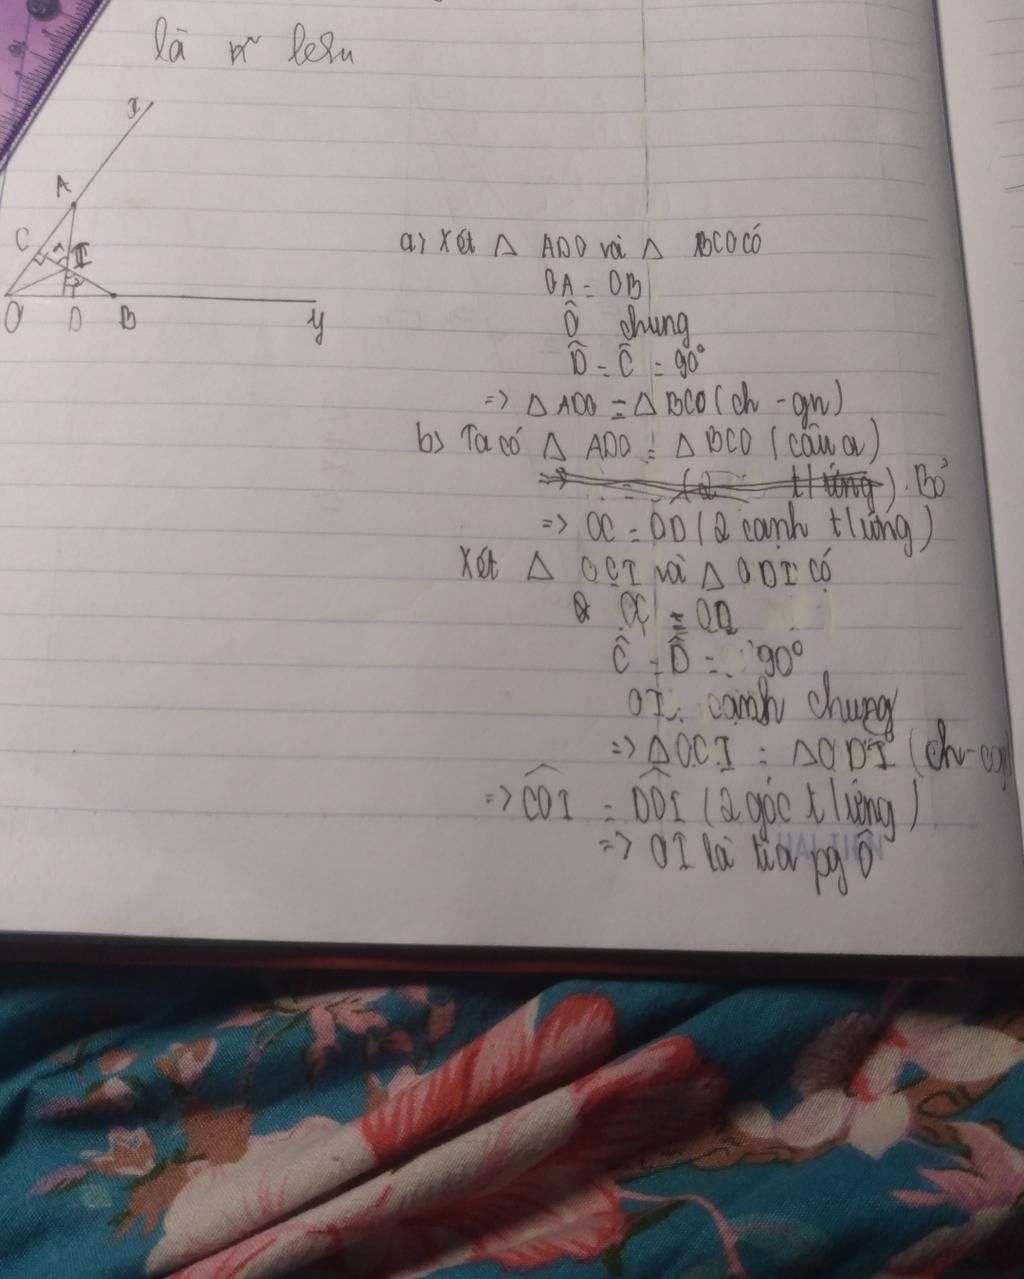 là
x
A
C
I
O
D
B
y
a) Xét △ ADO và △ BCO có
OA = OB
Ô chung
D̂ = Ĉ = 90°
=> △ ADO = △ BCO (ch - gn)
b) Ta có △ ADO = △ BCO (câu a)
=> = (2 t/ứng). Bỏ
=> OC = OD (2 cạnh t/ứng)
Xét △ OCI và △ ODI có
OC = OD
Ĉ = D̂ = 90°
OI: cạnh chung
=> △OCI = △ODI (ch-cgv)
=> COI = DOI (2 góc t/ứng)
=> OI là tia pg Ô